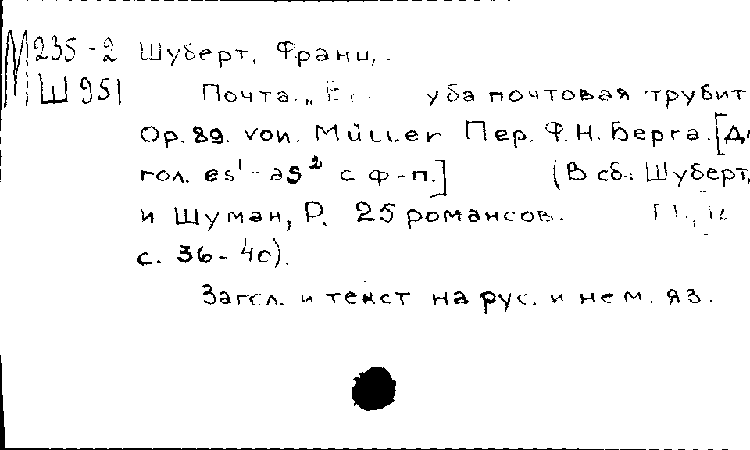 М 235-2 Шуберт, Франц.
Ш 951 Почта. „ уба почтовая трубит
Op. 89. von. Müller Пер. Ф.Н. Берга. [Д
гол. es¹ - as² с ф-п.] (В сб.: Шуберт,
и Шуман, Р. 25 романсов.
с. 36-40).
Загол. и текст на рус. и нем. яз.